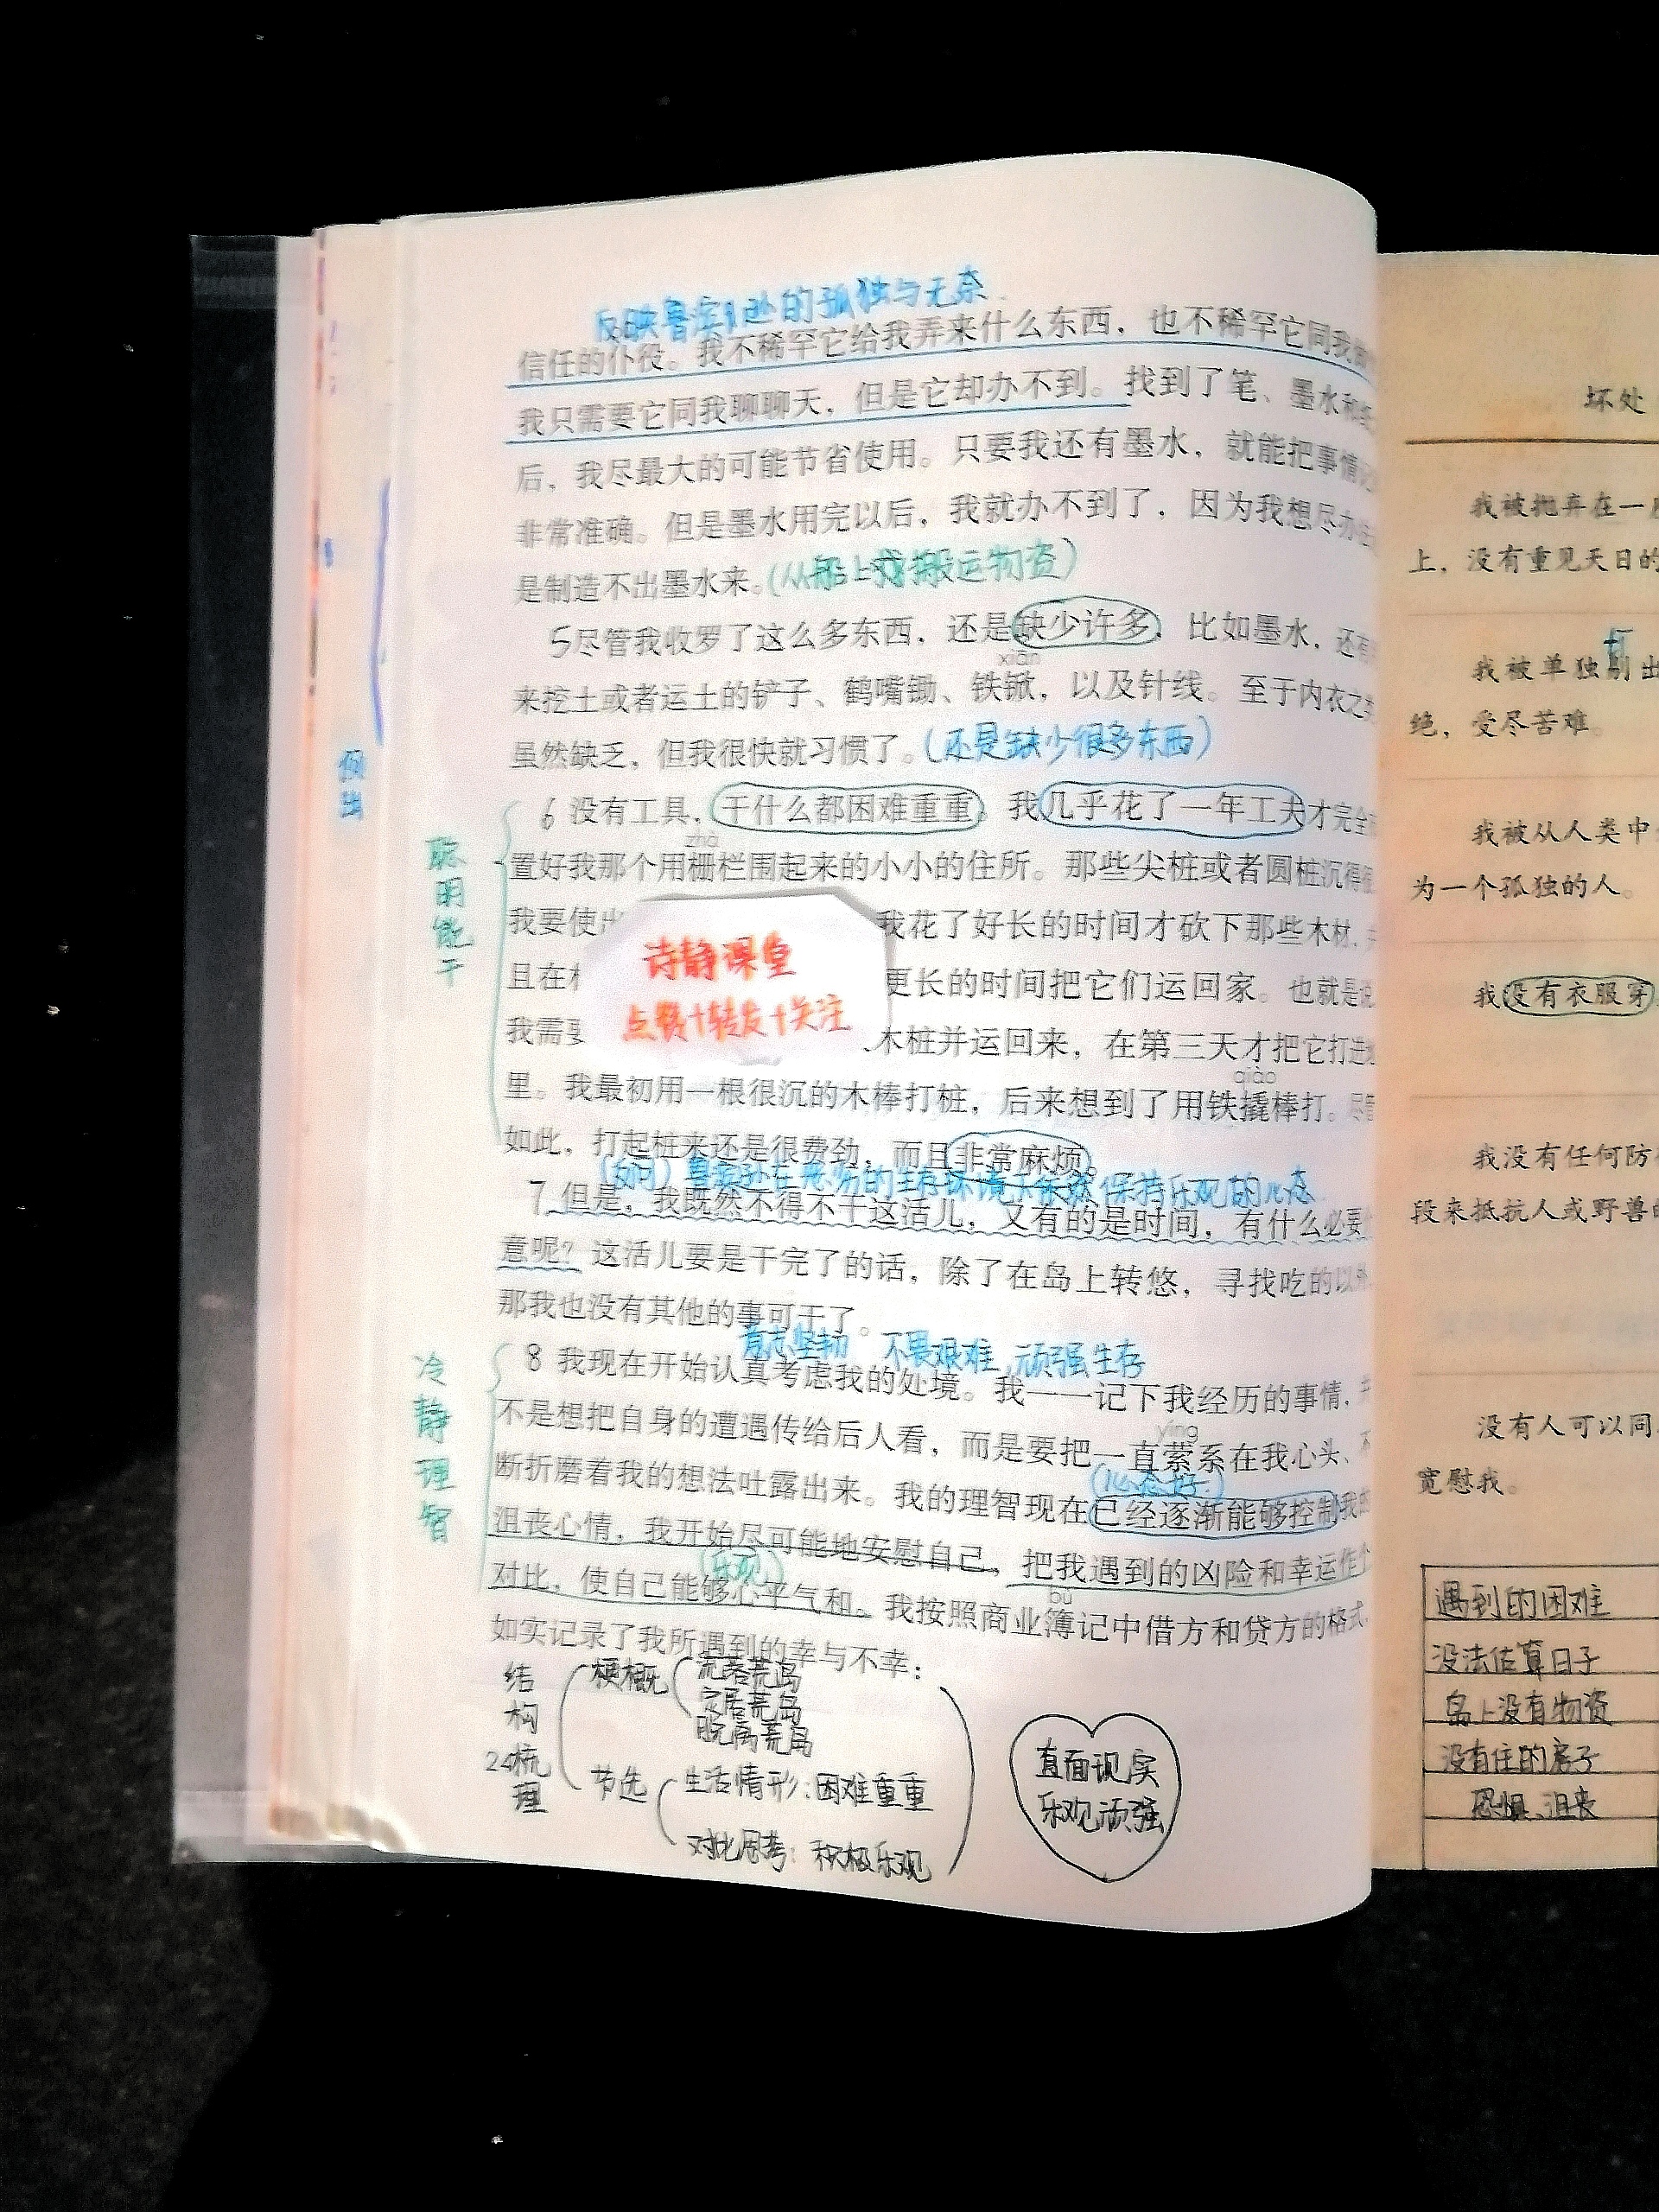 反映鲁滨逊的孤独与无奈
信任的仆役。我不稀罕它给我弄来什么东西，也不稀罕它同我
我只需要它同我聊聊天，但是它却办不到。找到了笔、墨水和
后，我尽最大的可能节省使用。只要我还有墨水，就能把事情
非常准确。但是墨水用完以后，我就办不到了，因为我想尽办
是制造不出墨水来。(从船上 搬运物资)
5尽管我收罗了这么多东西，还是缺少许多，比如墨水，还有
xiān
来挖土或者运土的铲子、鹤嘴锄、铁锨，以及针线。至于内衣之
虽然缺乏，但我很快就习惯了。(还是缺少很多东西)
6 没有工具，干什么都困难重重。我几乎花了一年工夫才完全
zhà
置好我那个用栅栏围起来的小小的住所。那些尖桩或者圆桩沉得
我要使出 我花了好长的时间才砍下那些木材，
且在 更长的时间把它们运回家。也就是说
我需要 木桩并运回来，在第三天才把它打进
qiào
里。我最初用一根很沉的木棒打桩，后来想到了用铁撬棒打。尽管
如此，打起桩来还是很费劲，而且非常麻烦。
聪明能干
诗静课堂
点赞+转发+关注
鲁滨逊在恶劣的生存环境下依然保持乐观的心态
7 但是，我既然不得不干这活儿，又有的是时间，有什么必要
意呢？这活儿要是干完了的话，除了在岛上转悠，寻找吃的以外
那我也没有其他的事可干了。
意志坚韧 不畏艰难 顽强生存
8 我现在开始认真考虑我的处境。我一一记下我经历的事情，
不是想把自身的遭遇传给后人看，而是要把一直萦系在我心头、不
yíng
断折磨着我的想法吐露出来。我的理智现在已经逐渐能够控制我的
(心态好)
沮丧心情，我开始尽可能地安慰自己，把我遇到的凶险和幸运作个
(乐观)
对比，使自己能够心平气和。我按照商业簿记中借方和贷方的格式，
bù
如实记录了我所遇到的幸与不幸：
冷静理智
结构梳理
24
梗概
流落荒岛
定居荒岛
脱离荒岛
节选
生活情形：困难重重
对比思考：积极乐观
直面现实
乐观顽强
坏处
我被抛弃在一
上，没有重见天日的
我被单独剔出
绝，受尽苦难。
我被从人类中
为一个孤独的人。
我没有衣服穿
我没有任何防
段来抵抗人或野兽的
没有人可以同
宽慰我。
遇到的困难
没法估算日子
岛上没有物资
没有住的房子
恐惧、沮丧